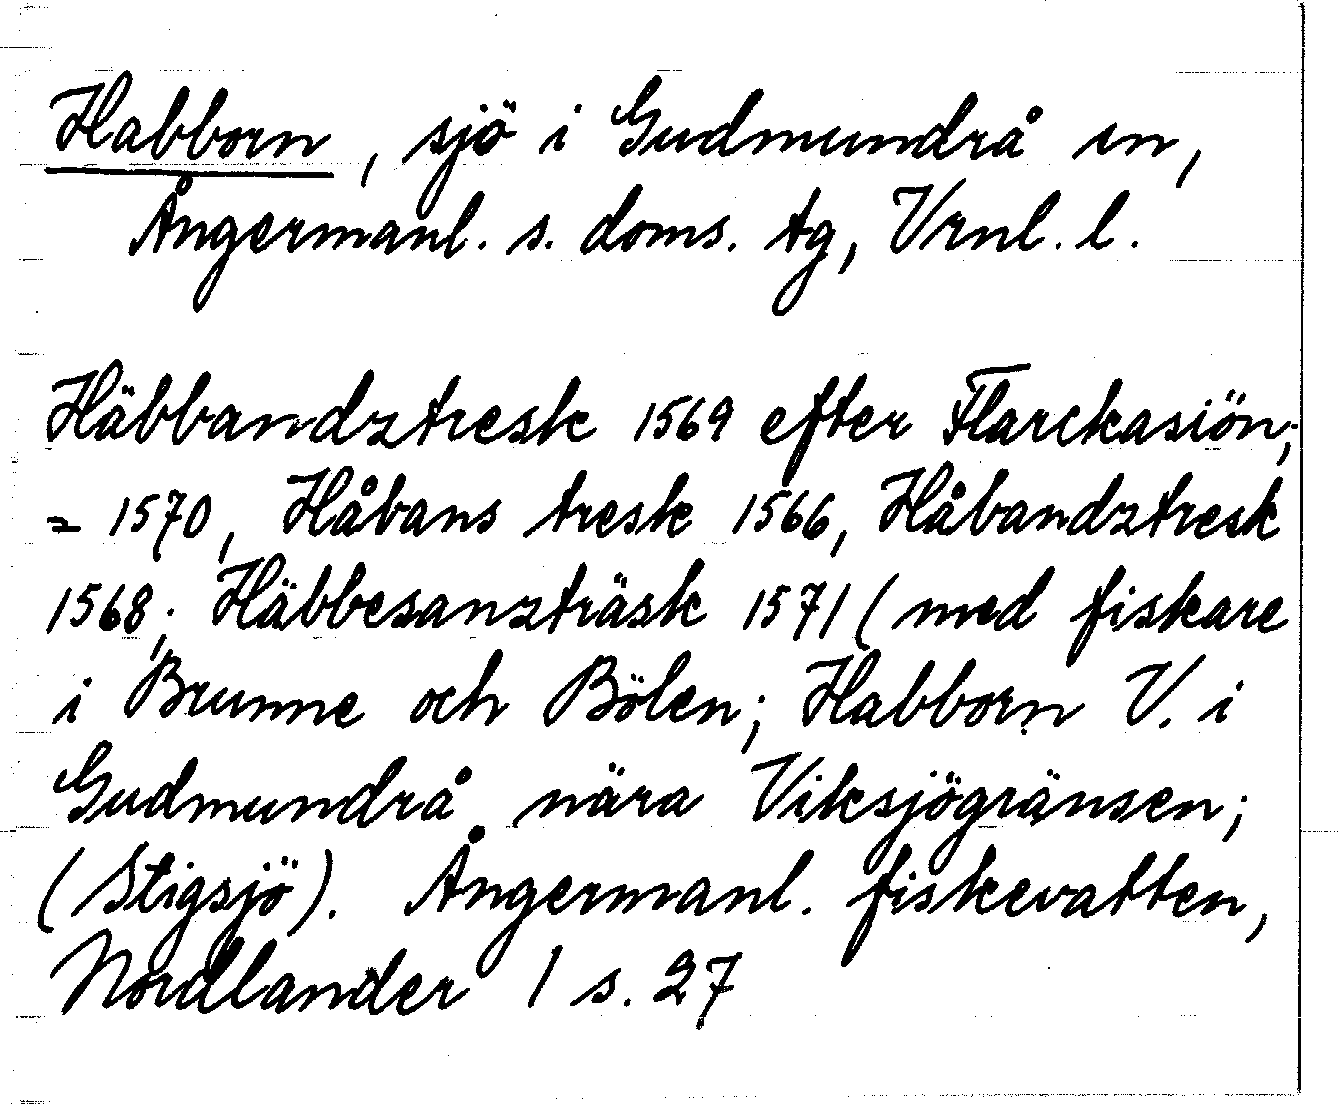 Habborn, sjö i Gudmundrå sn,
Ångermanl. s. doms. tg, Vrnl. l.
Häbbandztresk 1569 efter Flarckasiön;
= 1570, Håbans tresk 1566, Håbandztresk
1568; Häbbesanzträsk 1571 (med fiskare
i Brunne och Bölen; Habborn V. i
Gudmundrå nära Viksjögränsen;
(Stigsjö). Ångermanl. fiskevatten,
Nordlander 1 s. 27